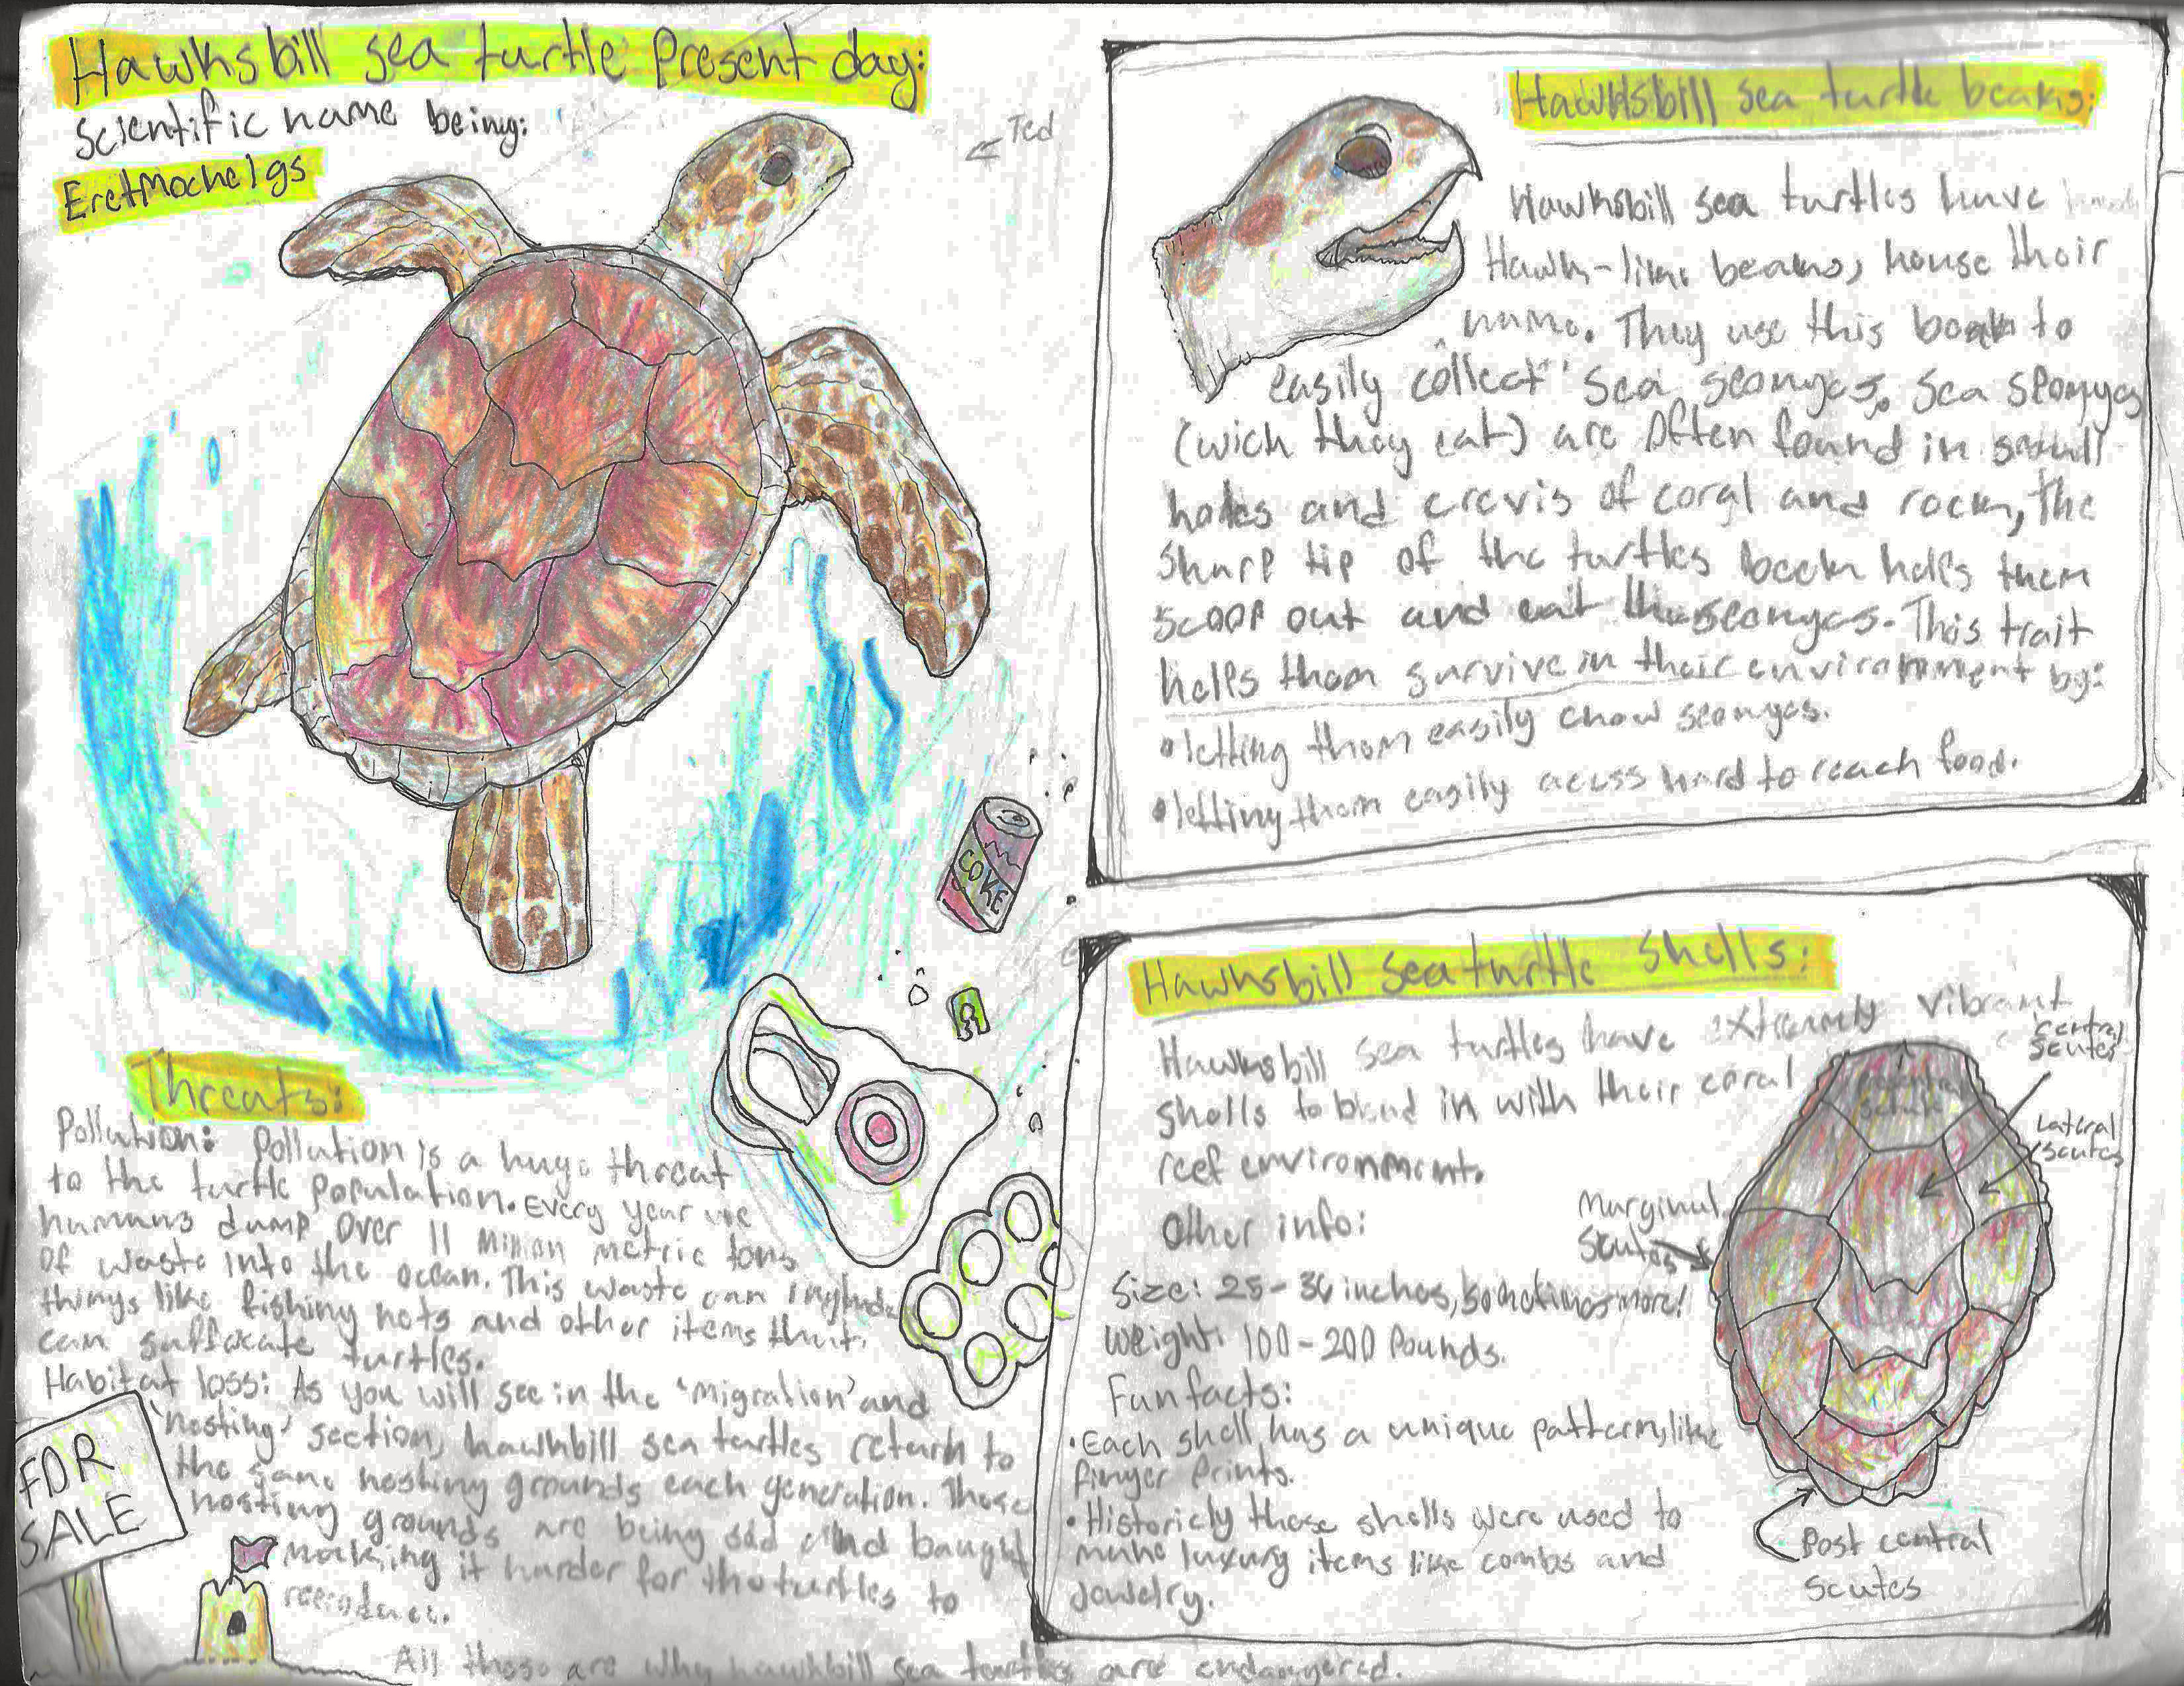 Hawksbill sea turtle Present day:
Scientific name being:
Eretmochelgs
← Ted
COKE
Threats:
Pollution: Pollution is a huge threat
to the turtle population. Every year we
humans dump over 11 Million metric tons
of waste into the ocean. This waste can include
things like fishing nets and other items that
can suffocate turtles.
Habitat loss: As you will see in the 'migration' and
'nesting' section, hawkbill sea turtles return to
the same nesting grounds each generation. These
nesting grounds are being sold and baught
making it harder for the turtles to
reproduce.
FOR
SALE
All these are why hawkbill sea turtles are endangered.
Hawksbill sea turtle beaks:
Hawksbill sea turtles have
Hawk-like beaks, house their
name. They use this beak to
easily collect sea sponges. Sea sponges
(wich they eat) are Often found in small
holes and crevis of coral and rock, the
sharp tip of the turtles beek helps them
scoop out and eat the sponges. This trait
helps them survive in their environment by:
•letting them easily chew sponges.
•letting them easily acess hard to reach food.
Hawksbill sea turtle shells:
Hawksbill sea turtles have extremely vibrant
shells to blend in with their coral
reef environment.
Other info:
Size: 25-36 inches, sometimes more!
Weight: 100-200 Pounds.
Fun facts:
•Each shell has a unique pattern, like
finger prints.
•Historicly these shells were used to
make luxury items like combs and
Jewelry.
central
scutes
Lateral
scutes
Marginal
Scutes
Post central
scutes